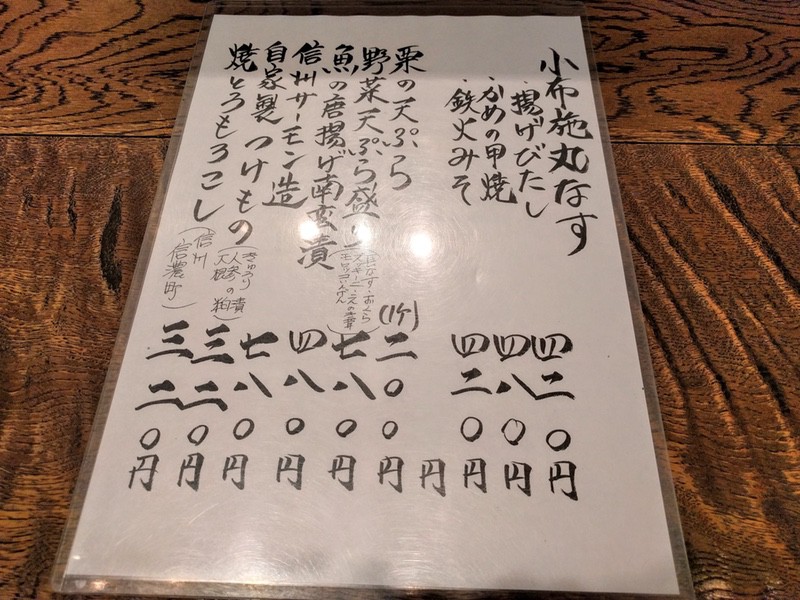 小布施丸なす
・揚げびたし 四二〇円
・かめの甲焼 四八〇円
・鉄火みそ 四二〇円
円
栗の天ぷら (1ケ) 二〇〇円
野菜天ぷら盛り 七八〇円
(丸なす・おくら
ズッキーニ・えの木茸
モロッコいんげん)
魚の唐揚げ南蛮漬 四八〇円
信州サーモン造 七八〇円
自家製つけもの 三二〇円
(きゅうり
人参の粕漬
大根)
焼とうもろこし 三二〇円
(信州
信濃町)